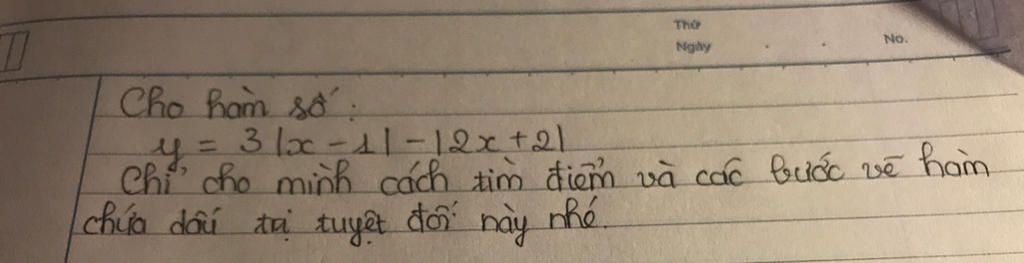 Thứ
Ngày
No.
Cho hàm số:
y = 3|x - 1| - |2x + 2|
Chỉ cho mình cách tìm điểm và các bước vẽ hàm
chứa dấu trị tuyệt đối này nhé.